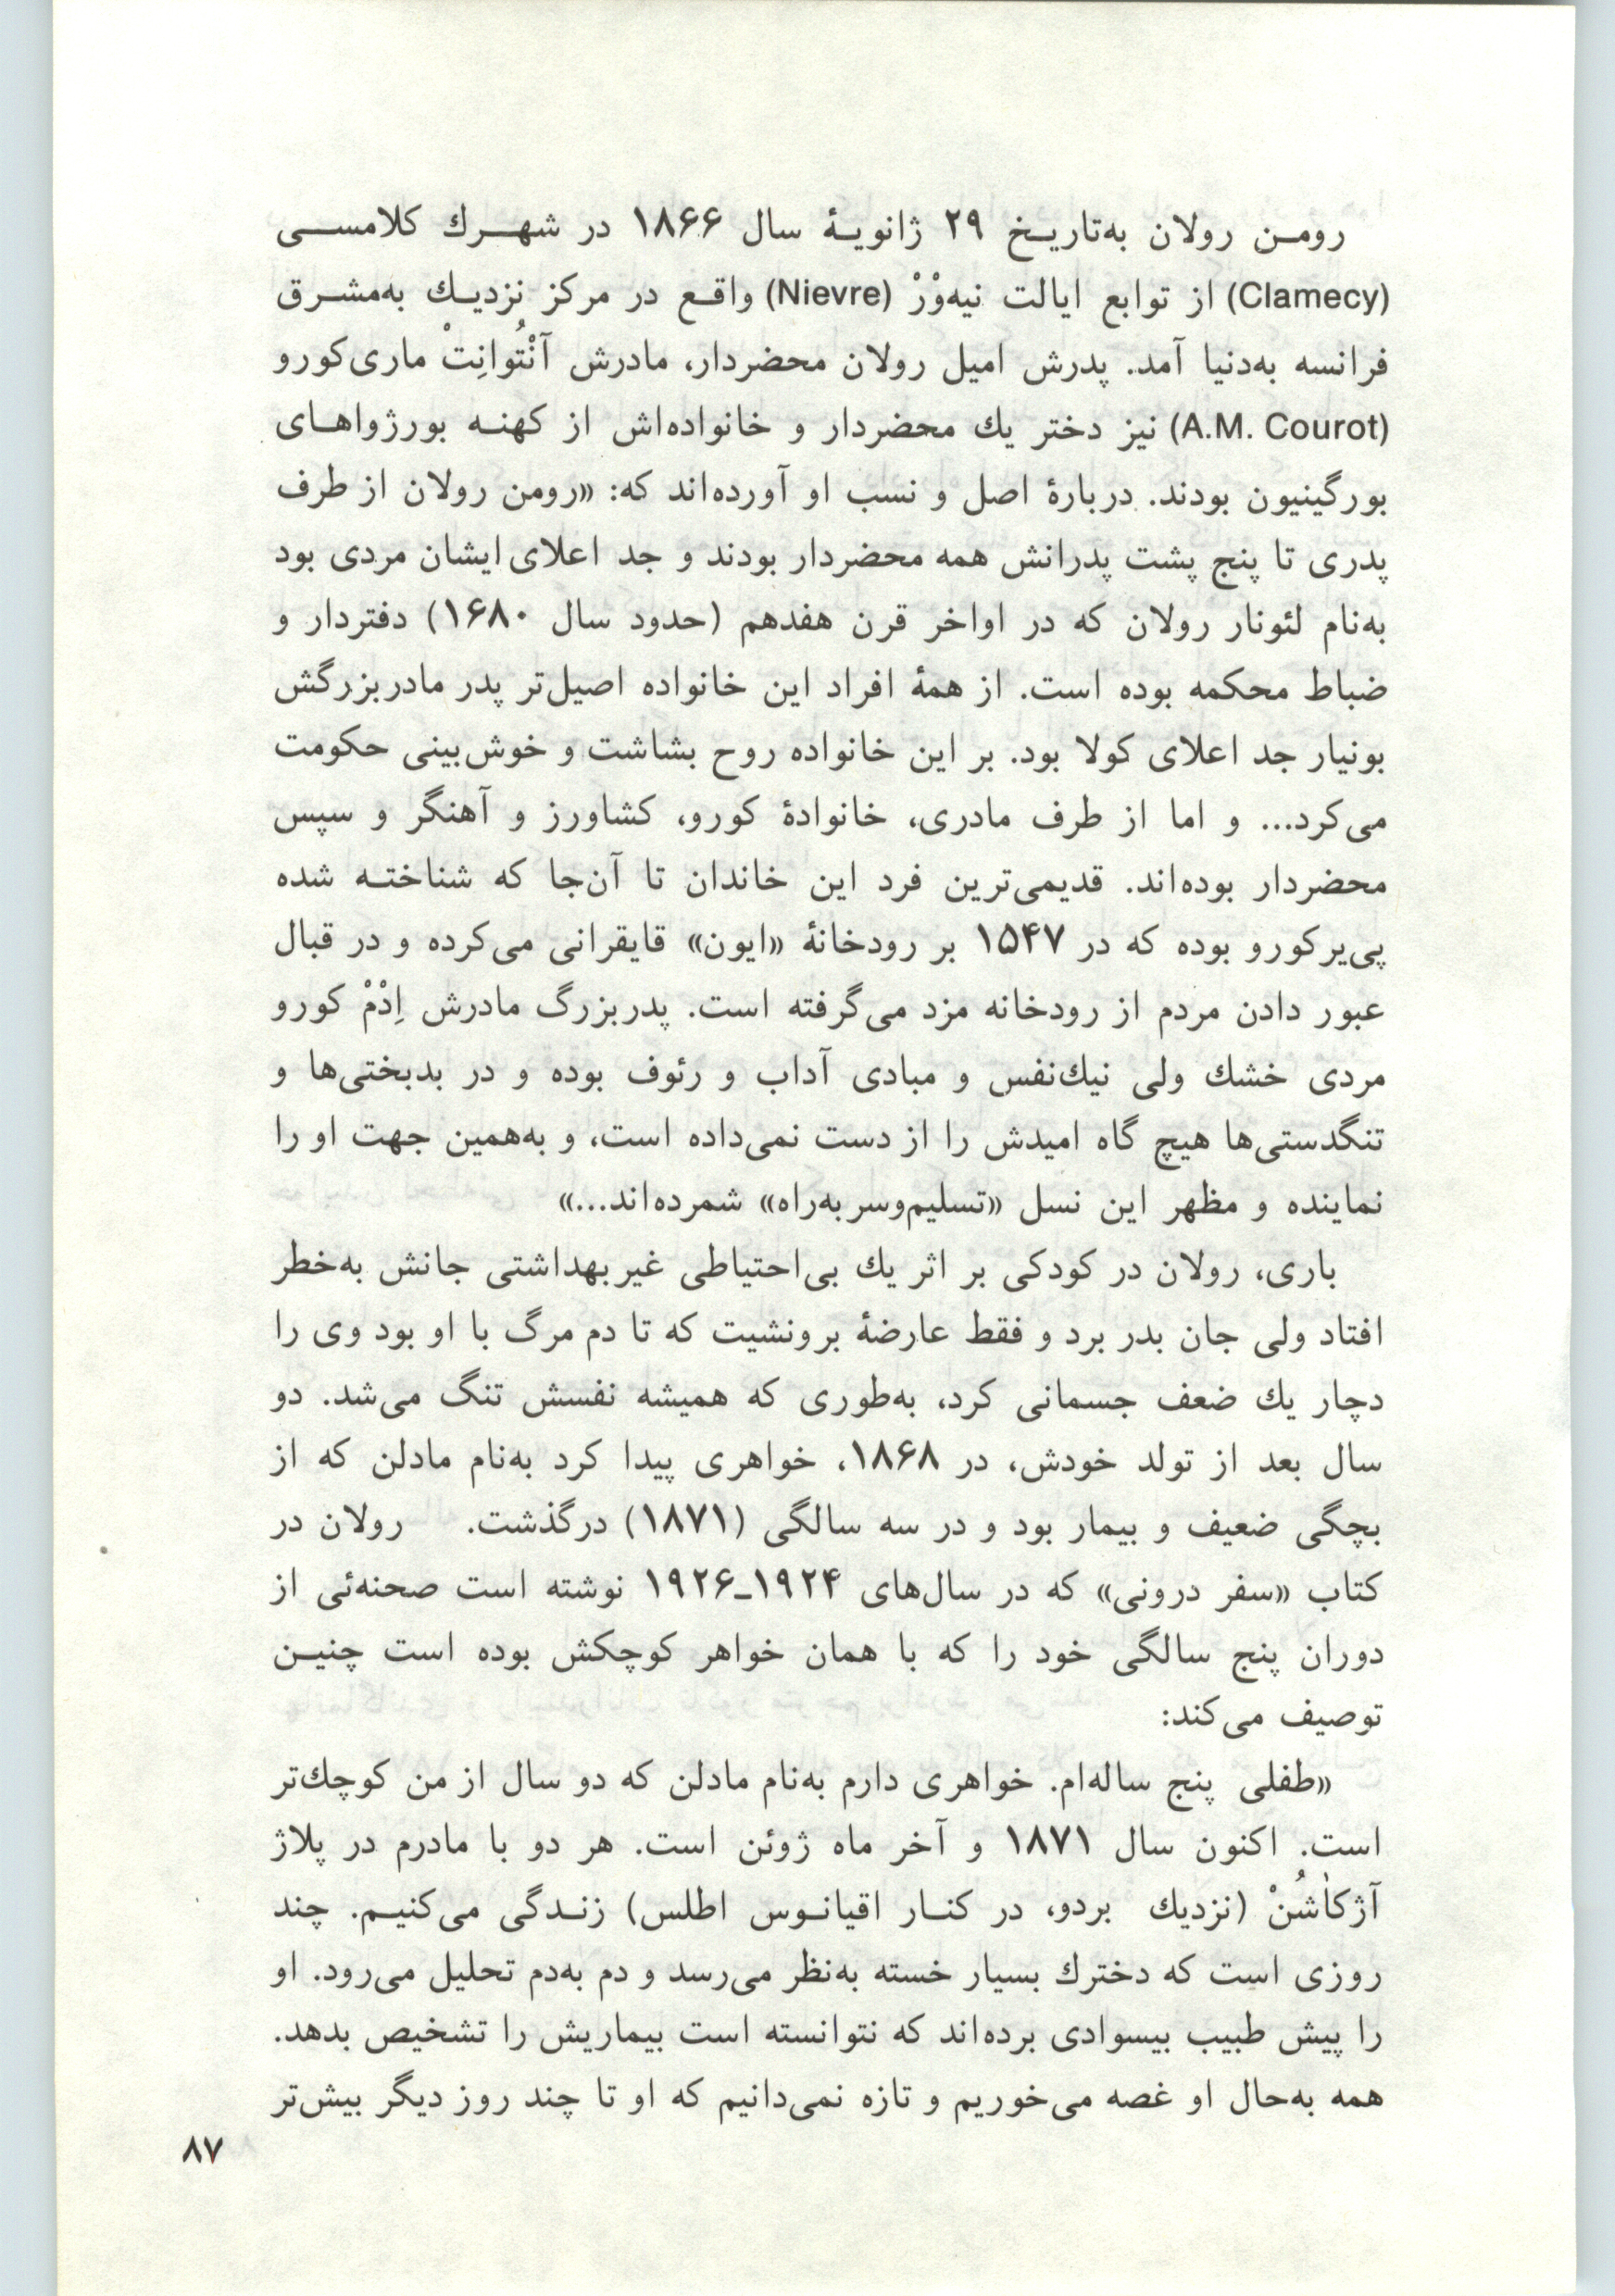 رومن رولان به‌تاریخ ۲۹ ژانویهٔ سال ۱۸۶۶ در شهرك كلامسی
(Clamecy) از توابع ایالت نیه‌وْرْ (Nievre) واقع در مركز نزدیك به‌مشرق
فرانسه به‌دنیا آمد. پدرش امیل رولان محضردار، مادرش آنْتُوانِتْ ماری‌كورو
(A.M. Courot) نیز دختر یك محضردار و خانواده‌اش از كهنه بورژواهای
بورگینیون بودند. دربارهٔ اصل و نسب او آورده‌اند كه: «رومن رولان از طرف
پدری تا پنج پشت پدرانش همه محضردار بودند و جد اعلای ایشان مردی بود
به‌نام لئونار رولان كه در اواخر قرن هفدهم (حدود سال ۱۶۸۰) دفتردار و
ضباط محكمه بوده است. از همهٔ افراد این خانواده اصیل‌تر پدر مادربزرگش
بونیار جد اعلای كولا بود. بر این خانواده روح بشاشت و خوش‌بینی حكومت
می‌كرد... و اما از طرف مادری، خانوادهٔ كورو، كشاورز و آهنگر و سپس
محضردار بوده‌اند. قدیمی‌ترین فرد این خاندان تا آن‌جا كه شناخته شده
پی‌یركورو بوده كه در ۱۵۴۷ بر رودخانهٔ «ایون» قایقرانی می‌كرده و در قبال
عبور دادن مردم از رودخانه مزد می‌گرفته است. پدربزرگ مادرش اِدْمْ كورو
مردی خشك ولی نیك‌نفس و مبادی آداب و رئوف بوده و در بدبختی‌ها و
تنگدستی‌ها هیچ گاه امیدش را از دست نمی‌داده است، و به‌همین جهت او را
نماینده و مظهر این نسل «تسلیم‌وسربه‌راه» شمرده‌اند...»
باری، رولان در كودكی بر اثر یك بی‌احتیاطی غیربهداشتی جانش به‌خطر
افتاد ولی جان بدر برد و فقط عارضهٔ برونشیت كه تا دم مرگ با او بود وی را
دچار یك ضعف جسمانی كرد، به‌طوری كه همیشه نفسش تنگ می‌شد. دو
سال بعد از تولد خودش، در ۱۸۶۸، خواهری پیدا كرد به‌نام مادلن كه از
بچگی ضعیف و بیمار بود و در سه سالگی (۱۸۷۱) درگذشت. رولان در
كتاب «سفر درونی» كه در سال‌های ۱۹۲۴ـ۱۹۲۶ نوشته است صحنه‌ئی از
دوران پنج سالگی خود را كه با همان خواهر كوچكش بوده است چنین
توصیف می‌كند:
«طفلی پنج ساله‌ام. خواهری دارم به‌نام مادلن كه دو سال از من كوچك‌تر
است. اكنون سال ۱۸۷۱ و آخر ماه ژوئن است. هر دو با مادرم در پلاژ
آژكاٰشُنْ (نزدیك بردو، در كنار اقیانوس اطلس) زندگی می‌كنیم. چند
روزی است كه دخترك بسیار خسته به‌نظر می‌رسد و دم به‌دم تحلیل می‌رود. او
را پیش طبیب بیسوادی برده‌اند كه نتوانسته است بیماریش را تشخیص بدهد.
همه به‌حال او غصه می‌خوریم و تازه نمی‌دانیم كه او تا چند روز دیگر بیش‌تر
۸۷